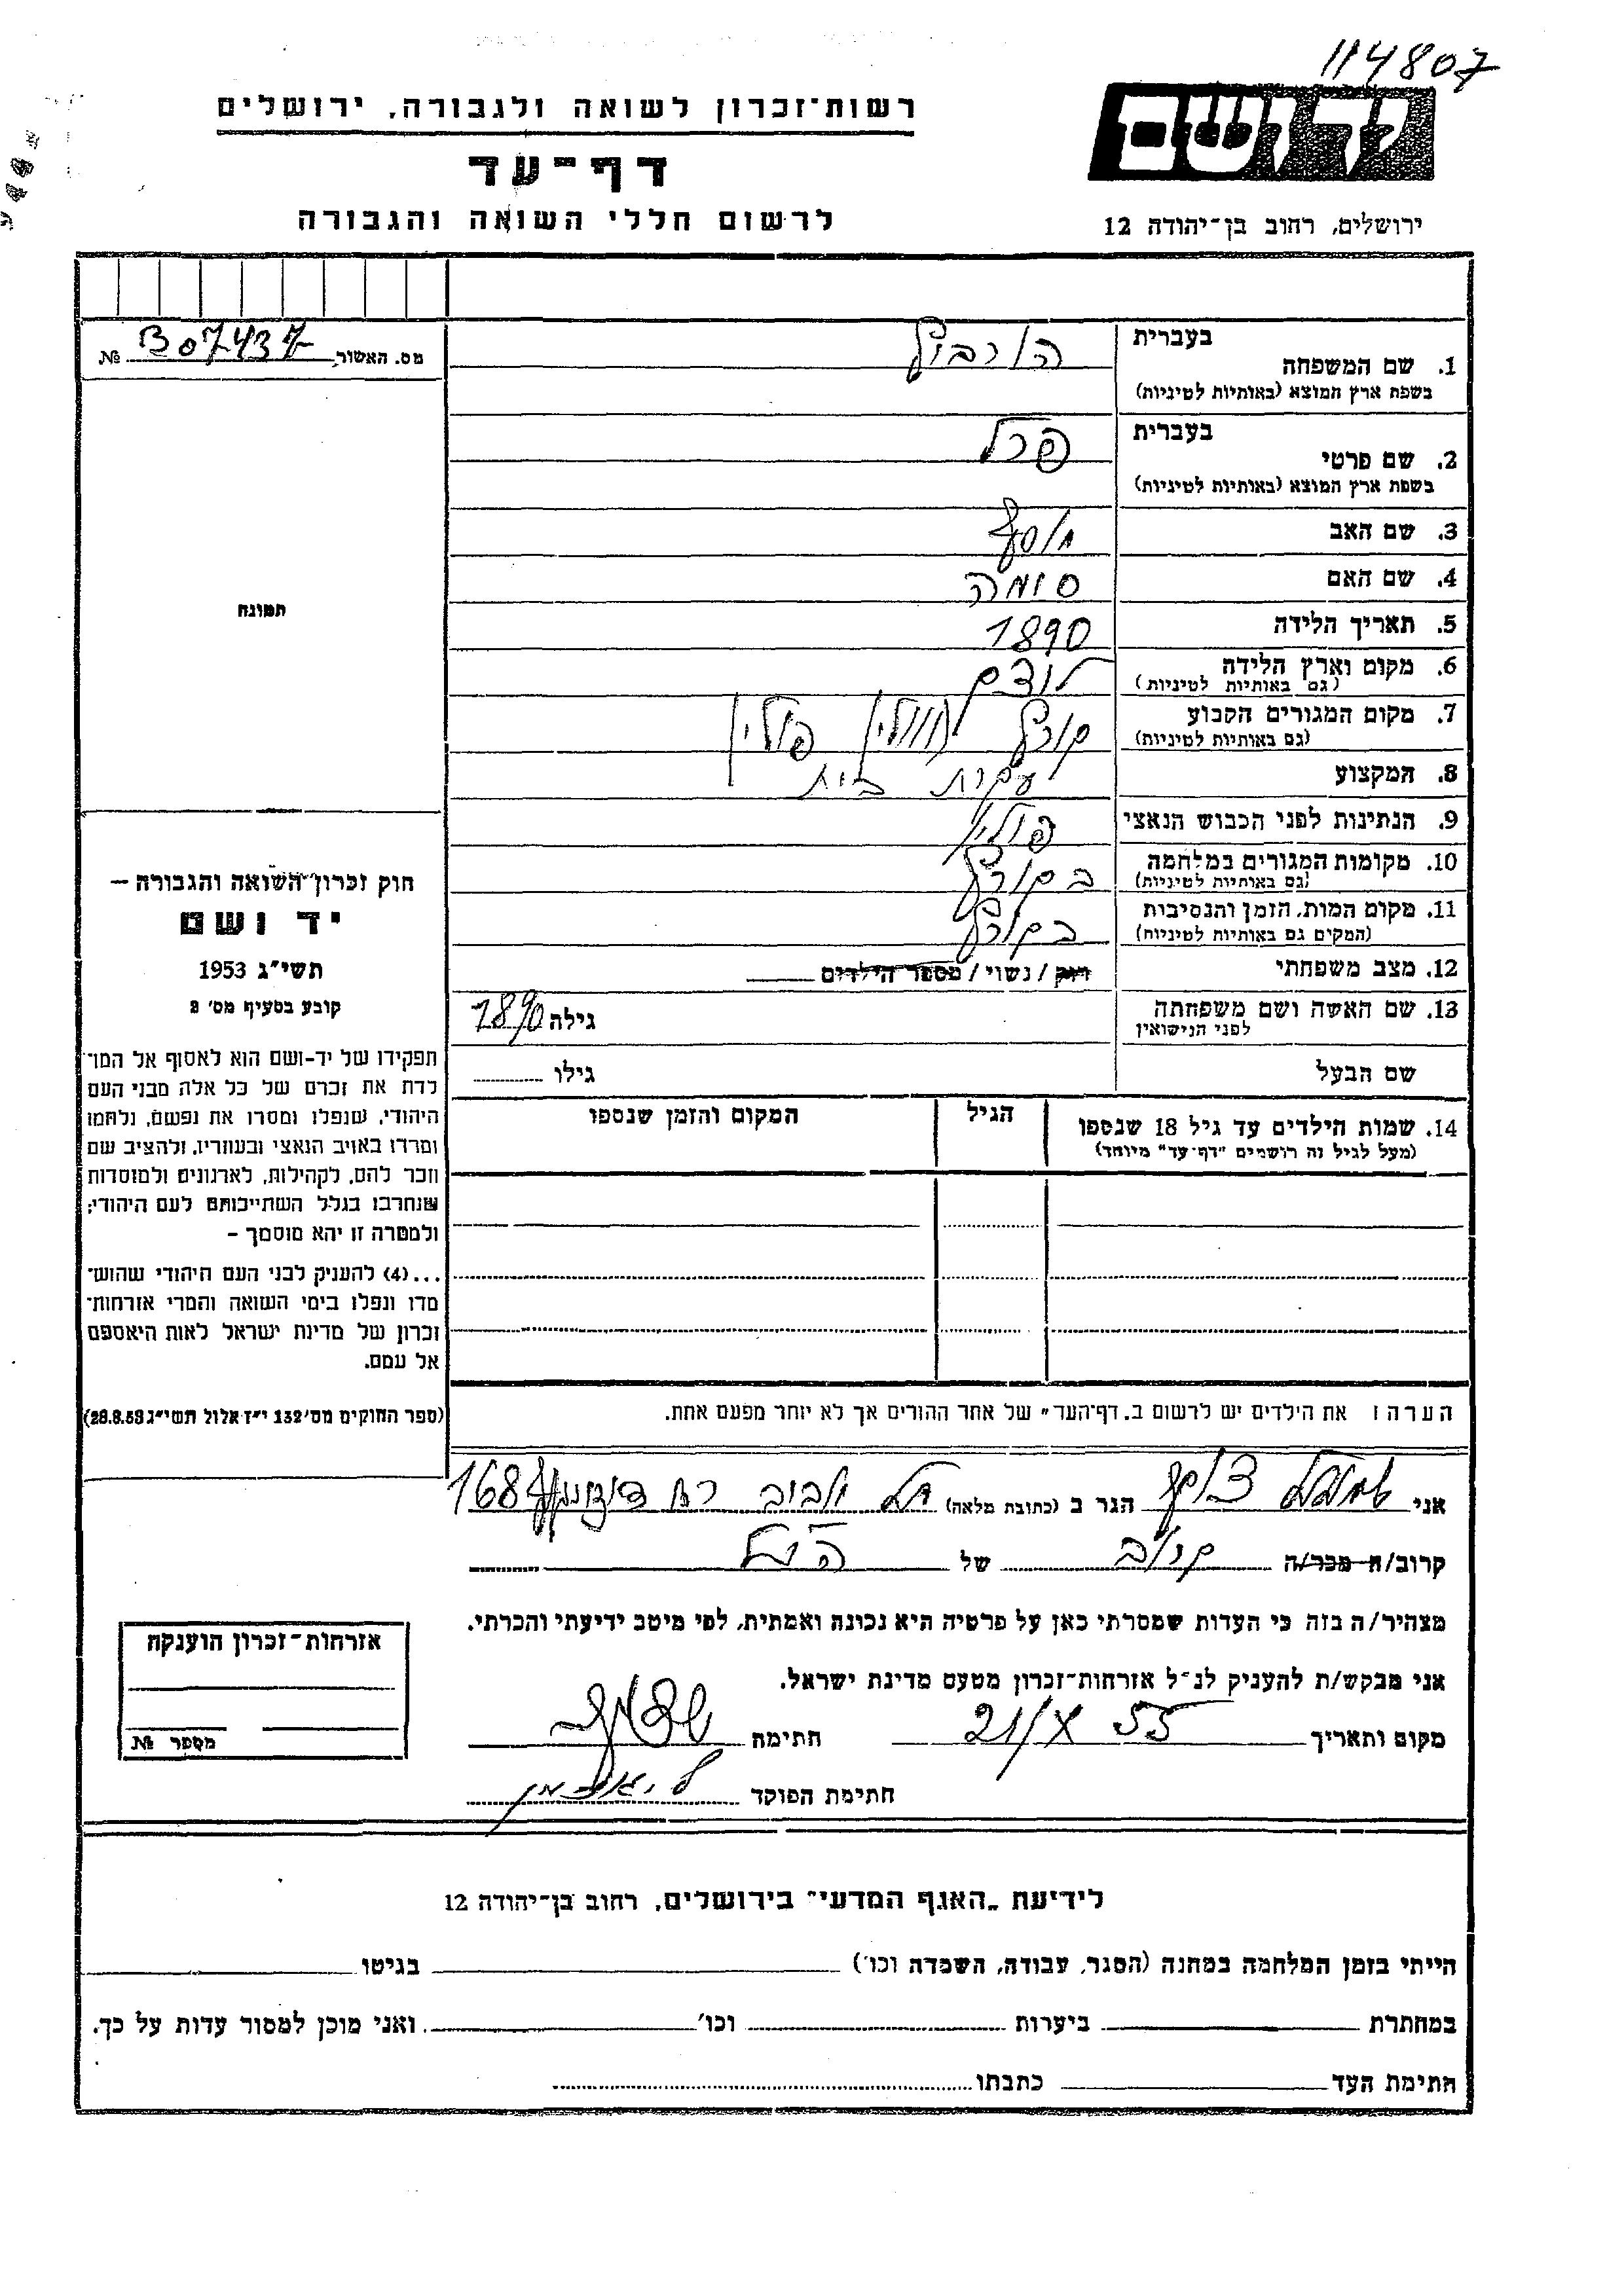 114807
ידושם
רשות־זכרון לשואה ולגבורה, ירושלים
דף־עד
לרשום חללי השואה והגבורה
ירושלים, רחוב בן־יהודה 12
מס. האשור, B07437 №
תמונה
חוק זכרון השואה והגבורה —
יד ושם
תשי״ג 1953
קובע בסעיף מס׳ 2
תפקידו של יד-ושם הוא לאסוף אל המו־
לדת את זכרם של כל אלה מבני העם
היהודי, שנפלו ומסרו את נפשם, נלחמו
ומרדו באויב הנאצי ובעוזריו, ולהציב שם
וזכר להם, לקהילות, לארגונים ולמוסדות
שנחרבו בגלל השתייכותם לעם היהודי;
ולמטרה זו יהא מוסמך –
...(4) להעניק לבני העם היהודי שהוש־
מדו ונפלו בימי השואה והמרי אזרחות־
זכרון של מדינת ישראל לאות היאספם
אל עמם.
(ספר החוקים מס׳ 132 י״ז אלול תשי״ג 28.8.53)
בעברית
1. שם המשפחה הורביץ
בשפת ארץ המוצא (באותיות לטיניות)
בעברית
2. שם פרטי פרל
בשפת ארץ המוצא (באותיות לטיניות)
3. שם האב יוסף
4. שם האם סומה
5. תאריך הלידה 1890
6. מקום וארץ הלידה
(גם באותיות לטיניות)
7. מקום המגורים הקבוע קורץ ווולין פולין
(גם באותיות לטיניות)
8. המקצוע עקרת בית
9. הנתינות לפני הכבוש הנאצי פולין
10. מקומות המגורים במלחמה בקורץ
(גם באותיות לטיניות)
11. מקום המות, הזמן והנסיבות בקורץ
(המקום גם באותיות לטיניות)
12. מצב משפחתי רוק / נשוי / מספר הילדים
13. שם האשה ושם משפחתה גילה 1890
לפני הנישואין
שם הבעל גילו
14. שמות הילדים עד גיל 18 שנספו הגיל המקום והזמן שנספו
(מעל לגיל זה רושמים "דף־עד" מיוחד)
הערה: את הילדים יש לרשום ב„דף־העד" של אחד ההורים אך לא יותר מפעם אחת.
אני הגר ב (כתובת מלאה) תל אביב רח דיזנגוף 168
קרוב/ה מכר/ה קרוב של הנ״ל
מצהיר/ה בזה כי העדות שמסרתי כאן על פרטיה היא נכונה ואמתית, לפי מיטב ידיעתי והכרתי.
אני מבקש/ת להעניק לנ״ל אזרחות־זכרון מטעם מדינת ישראל.
מקום ותאריך 21/X 55 חתימה
חתימת הפוקד
אזרחות־זכרון הוענקה
מספר №
לידיעת „האגף המדעי" בירושלים, רחוב בן־יהודה 12
הייתי בזמן המלחמה במחנה (הסגר, עבודה, השמדה וכו׳) בגיטו
במחתרת ביערות וכו׳ ואני מוכן למסור עדות על כך.
חתימת העד כתבתו